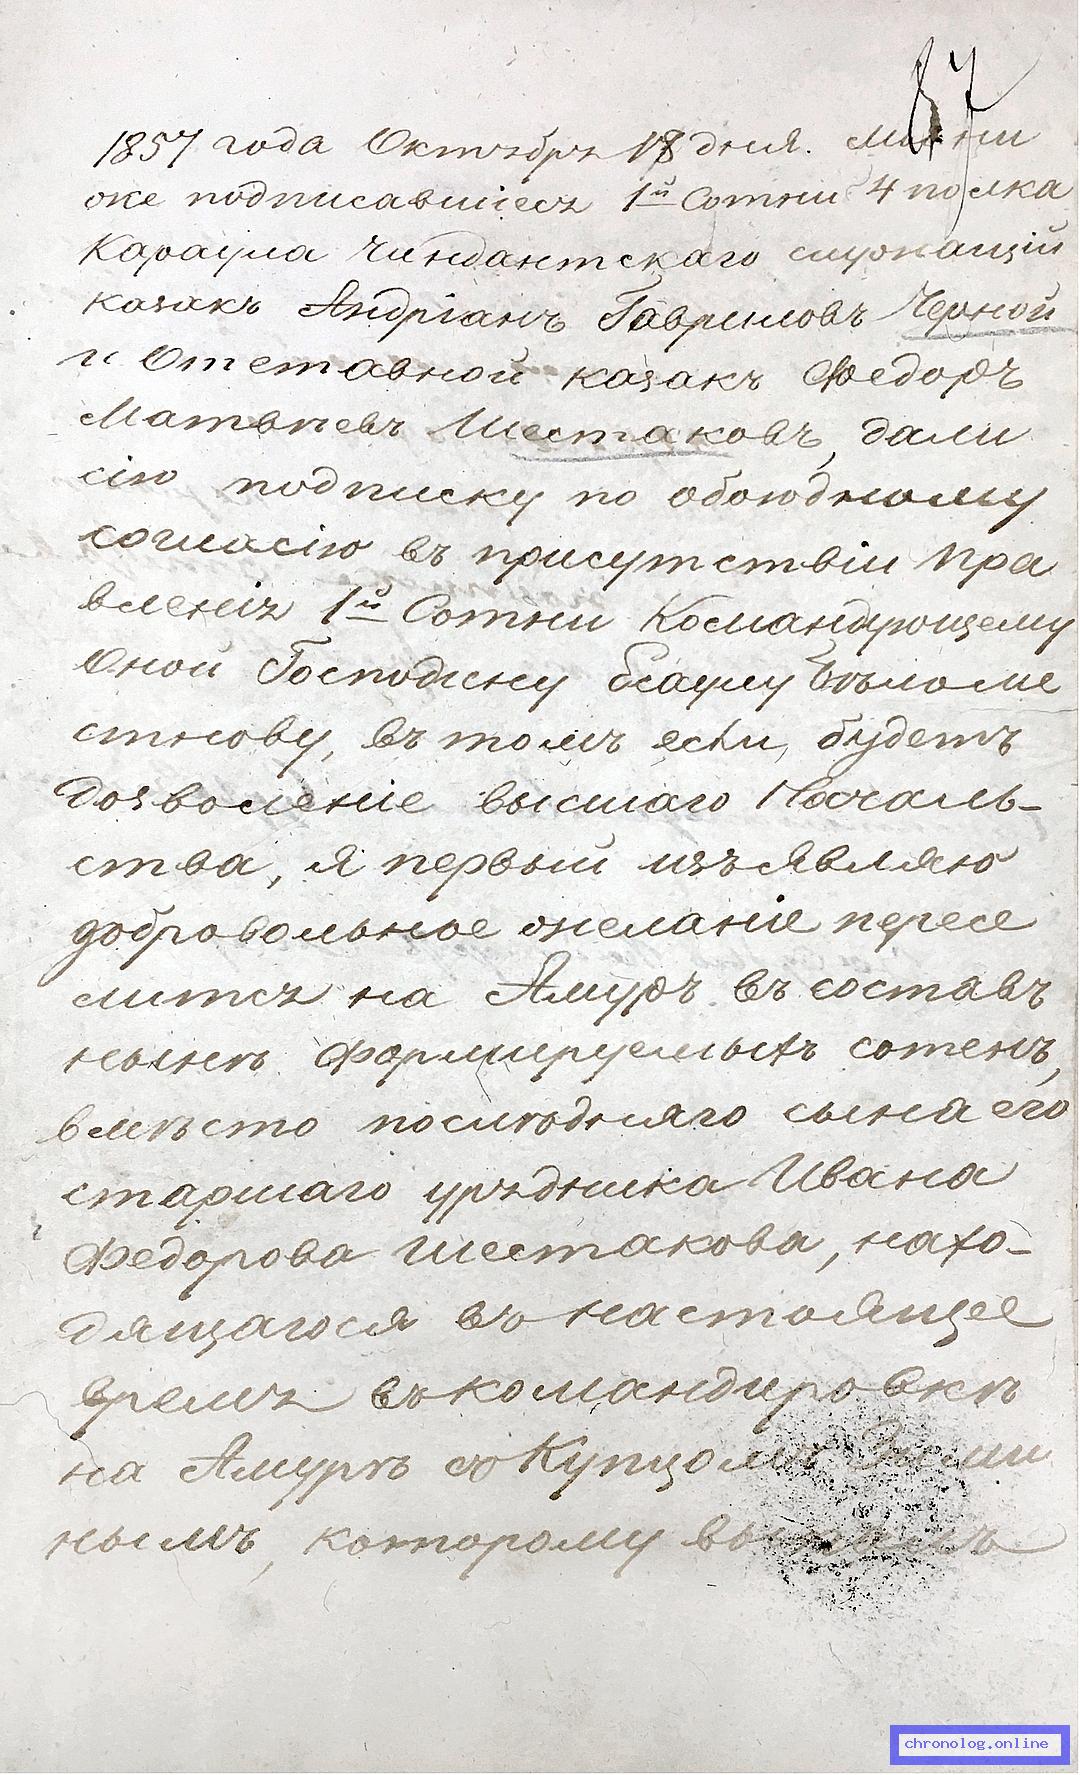 87
1857 года Октября 18 дня. Мы ни
же подписавшіеся 1й Сотни 4 полка
Караула Чиндантскаго служащій
казакъ Андріанъ Гавриловъ Черной
и Отставной казакъ Федоръ
Матвѣевъ Шестаковъ, дали
сію подписку по обоюдному
согласію въ присутствіи Пра
вленія 1й Сотни Командующему
Оной Господину Есаулу Бѣломе
стнову, въ томъ если, будетъ
дозволеніе высшаго Началь-
ства, я первый изъявляю
добровольное желаніе пересе
литься на Амуръ въ составъ
нынѣ формируемыхъ сотенъ,
вмѣсто послѣдняго сына его
старшаго урядника Ивана
Федорова Шестакова, нахо-
дящагося въ настоящее
время въ командировкѣ
на Амурѣ съ Купцомъ
нымъ, которому
chronolog.online